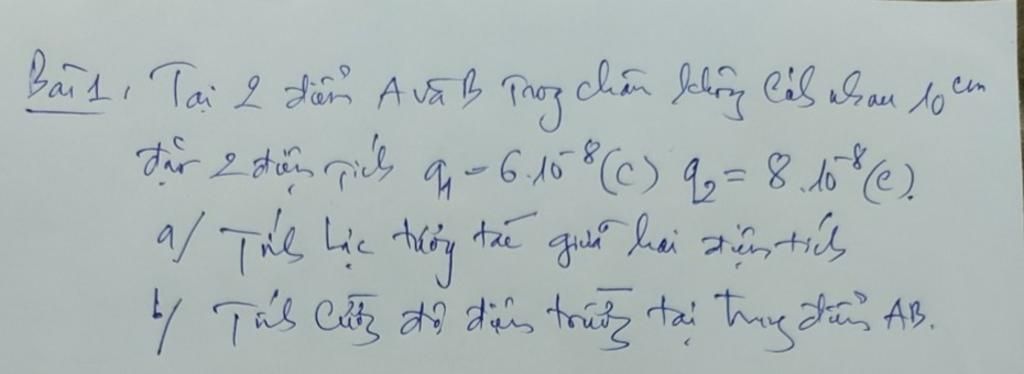 Bài 1, Tại 2 điểm A và B trong chân không cách nhau 10 cm
đặt 2 điện tích q₁ = 6.10⁻⁸(C) q₂ = 8.10⁻⁸(C).
a/ Tính lực tương tác giữa hai điện tích
b/ Tính cường độ điện trường tại trung điểm AB.